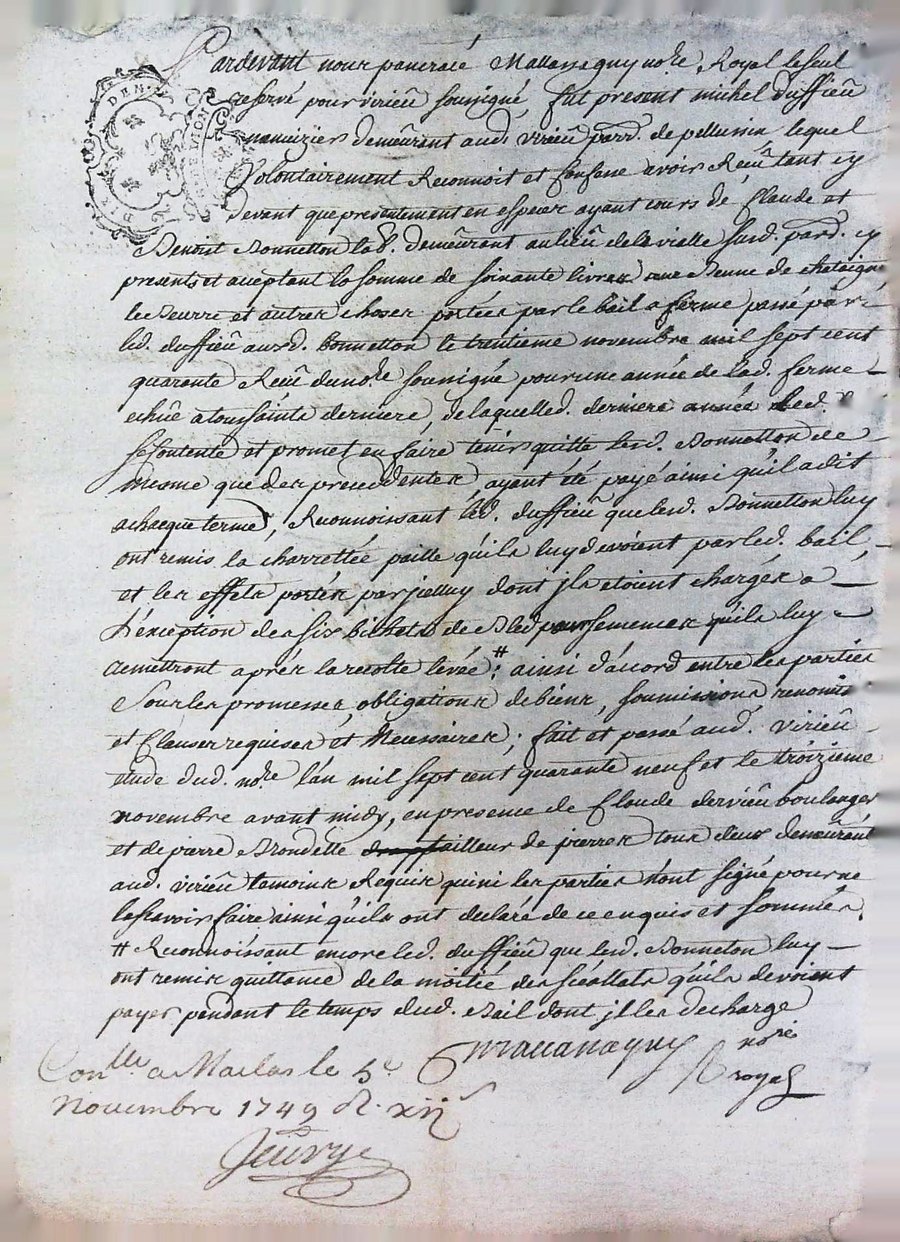 Pardevant nous pancrace Mattanaguy no.re Royal le seul
reservé pour virieû sousigné fut present michel Duffieû
demeurant aud. virieû parr. de pellussin lequel
Volontairement Reconnoit et Confesse avoir Receû tant cy
devant que presentement en especes ayant cours de Claude et
Benoit Bonnetton lab.rs demeurant au lieû de la vialle susd. parr. cy
presents et acceptant la somme de soixante livres une Benne de chataigne
le Beurre et autres choses portées par le bail a ferme passé par
led. duffieû ausd. bonnetton le trentieme novembre mil sept cent
quarante Receû du no.re sousigné pour une année de lad. ferme
echûe a toussaints derniere, de laquelle d. derniere année led.
se Contente et promet en faire tenir quitte lesd. Bonnetton de
mesme que des precedentes ayant été payé ainsi qu'il a dit
a chacque terme, Reconnoissant led. duffieû que lesd. Bonnetton luy
ont remis la charrettée paille qu'ils luy devoient par led. bail,
et les effets portés par jcelluy dont jls etoient chargés a
L'exception des six bichets de Bled pour semences qu'ils luy
remettront aprés la recolte levée # ainsi d'accord entre les parties
Sous les promesses, obligations de biens, soumissions, renonc.
et Clauses requises et Necessaires; fait et passé aud. virieû
etude dud. no.re l'an mil sept cent quarante neuf et le troizieme
novembre avant midy, en presence de Claude dervieû boulanger
et de pierre Brondelle tailleur de pierres tous deux demeurant
aud. virieû temoins Requis qui ni les parties n'ont signé pour ne
le sçavoir faire ainsi qu'ils ont declaré de ce enquis et sommés.
# Reconnoissant encore led. duffieû que lesd. Bonneton luy
ont remis quittance de la moitié des qu'ils devoient
payer pendant le temps dud. Bail dont jl les decharge
Mattanaguy no.re
royal
Con.lle a Maclas le 5e
Novembre 1749 R. xij s